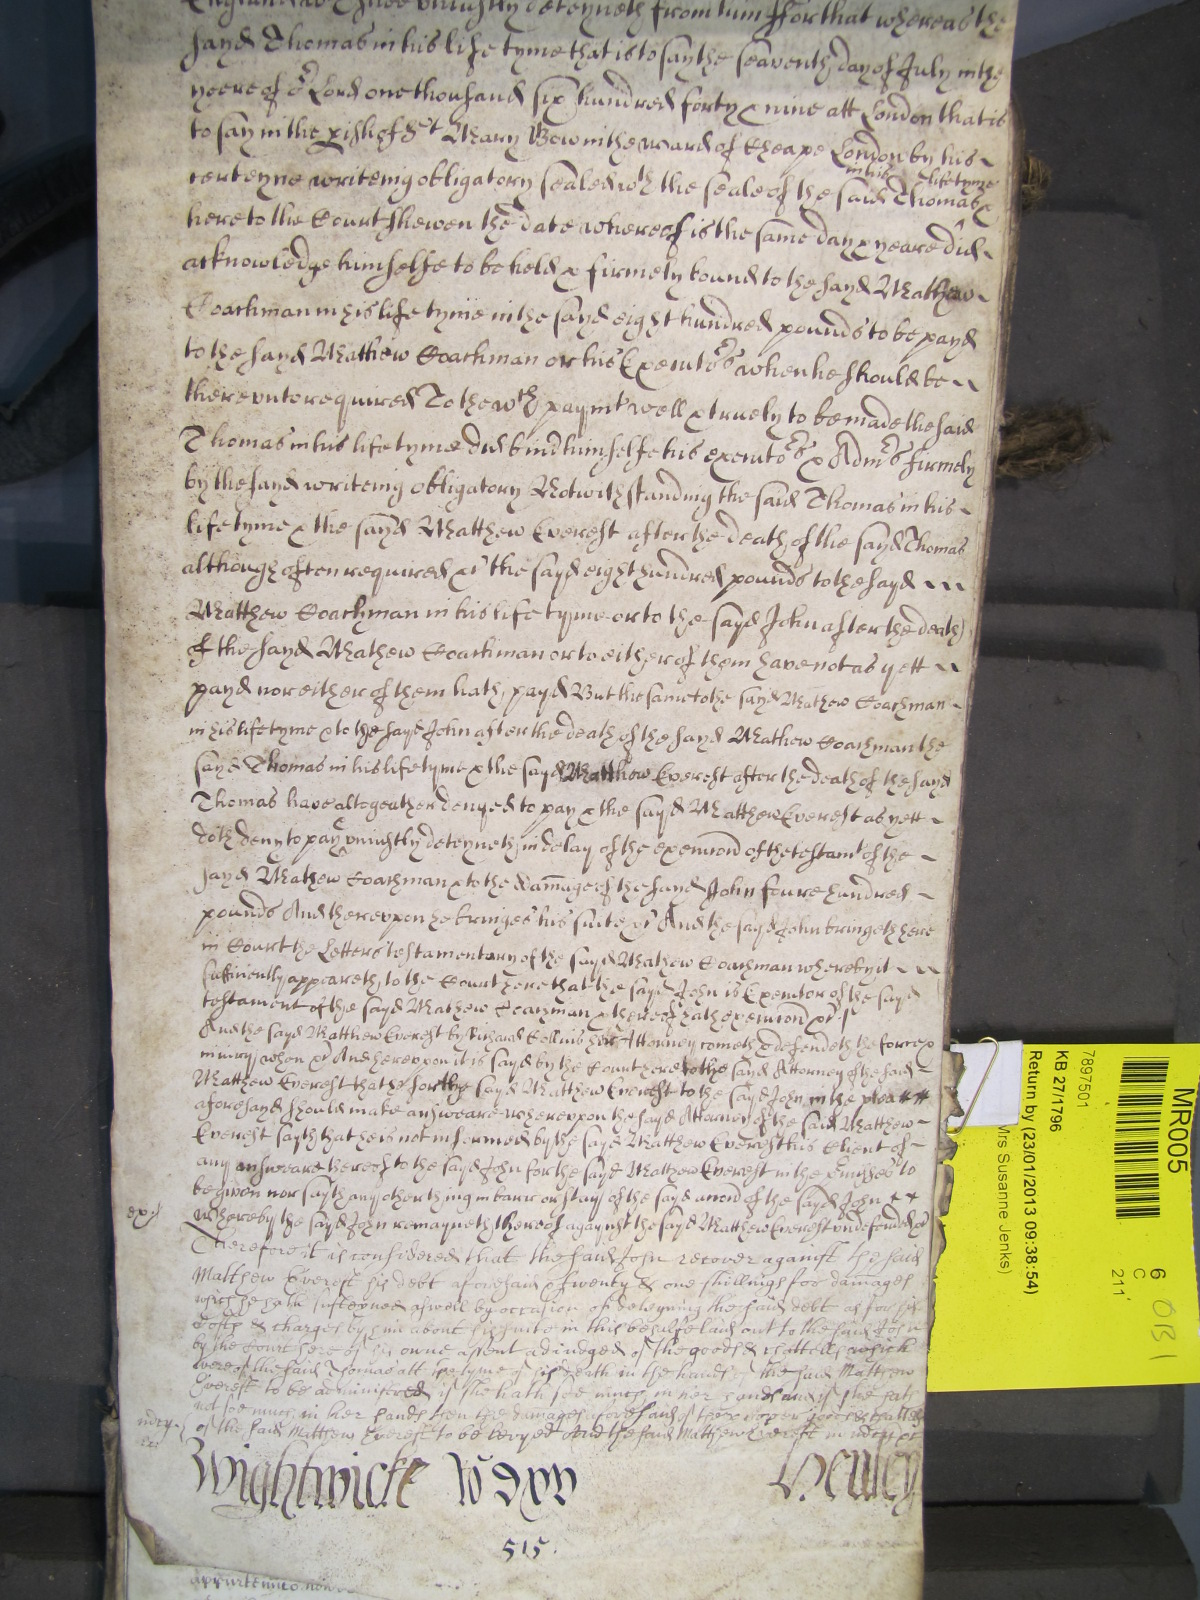 England & which hee uniustly deteyneth from him For that whereas the
sayd Thomas in his life tyme that is to say the seaventh day of July in the
yeere of or Lord one thousand six hundred forty & nine att London that is
to say in the pish of St Mary Bow in the ward of Cheape London by his
in his lifetyme
certeyne writeing obligatory sealed wth the seale of the said Thomas
here to the Court shewen the date whereof is the same day & yeare did
acknowledge himselfe to be held & firmely bound to the sayd Mathew
Coachman in his life tyme in the sayd eight hundred pounds to be payd
to the sayd Mathew Coachman or his Executors when he should be
thereunto required To the wch paymt well & truely to be made the said
Thomas in his life tyme did bind himselfe his executors & Admrs firmely
by the sayd writeing obligatory Notwithstanding the said Thomas in his
life tyme & the sayd Matthew Everest after the death of the sayd Thomas
although often required &c the sayd eight hundred pounds to the sayd
Matthew Coachman in his life tyme or to the sayd John after the death
of the sayd Mathew Coachman or to either of them have not as yett
payd nor either of them hath payd But the same to the sayd Mathew Coachman
in his life tyme & to the sayd John after the death of the sayd Mathew Coachman the
sayd Thomas in his life tyme & the sayd Matthew Everest after the death of the sayd
Thomas have altogeather denyed to pay & the sayd Matthew Everest as yett
doth deny to pay & uniustly deteyneth in delay of the execucon of the testamt of the
sayd Mathew Coachman & to the damage of the sayd John foure hundred
pounds And thereupon he bringes his suite &c And the sayd John bringeth here
in Court the Letters testamentary of the sayd Mathew Coachman whereby it
sufficiently appeareth to the Court here that the sayd John is Executor of the sayd
testament of the sayd Mathew Coachman & thereof hath execucon &c
And the sayd Matthew Everest by Richard Collins her Attorney cometh & defendeth the force &
iniury when &c And hereupon it is sayd by the Court here to the sayd Attorney of the said
Matthew Everest that he for the sayd Matthew Everest to the sayd John in the plea
aforesayd should make answeare whereupon the sayd Attorney of the said Matthew
Everest sayth that he is not informed by the sayd Matthew Everest his Client of
any answeare thereof to the sayd John for the sayd Mathew Everest in the pmisses to
be given nor sayth any other thing in barr or stay of the sayd accon of the sayd John
Whereby the sayd John remayneth thereof against the sayd Matthew Everest undefended &c
Therefore it is considered that the said John recover against the said
Matthew Everest his debt aforesaid & twenty & one shillings for damages
which he hath susteyned aswell by occasion of deteyning the said debt as for his
Costs & charges by him about his suite in this behalfe laid out to the said John
by the Court here of his owne assent adiudged of the goods & chattells which
were of the said Thomas att the tyme of his death in the hands of the said Matthew
Everest to be administred if she hath soe much in her hands and if she hath
not soe much in her hands then the damages aforesaid of the proper goods & chattells
of the said Matthew Everest to be levyed And the said Matthew Everest in mercy &c
mercy
Wightwicke Ro Dxv Henley
515.
MR005
7897501
KB 27/1796
Return by (23/01/2013 09:38:54)
Mrs Susanne Jenks)
6
C
211'